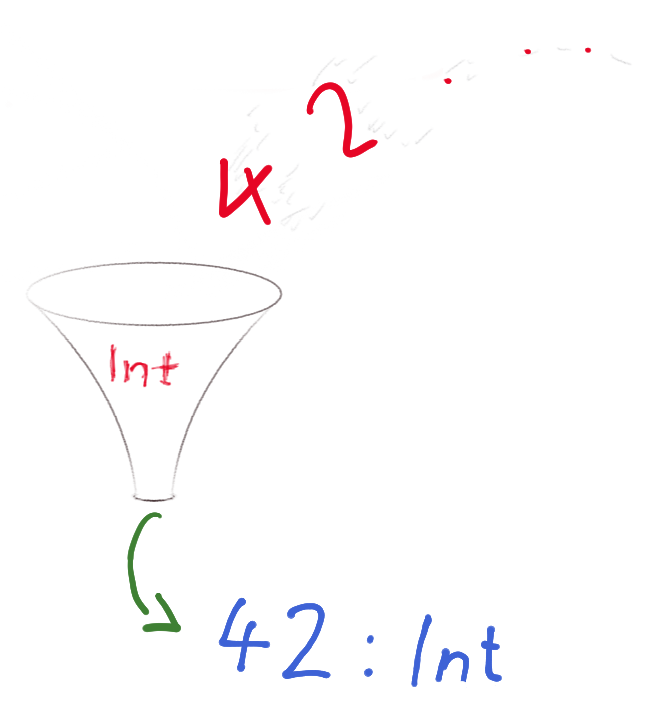 4 2 . . .
Int
42 : Int